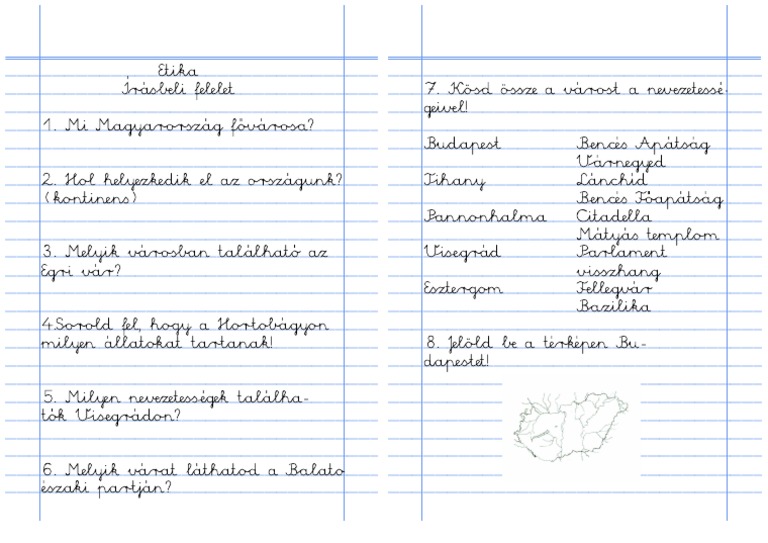 Etika
Írásbeli felelet
1. Mi Magyarország fővárosa?
2. Hol helyezkedik el az országunk?
(kontinens)
3. Melyik városban található az
Egri vár?
4Sorold fel, hogy a Hortobágyon
milyen állatokat tartanak!
5. Milyen nevezetességek találha-
tók Visegrádon?
6. Melyik várat láthatod a Balato
északi partján?
7. Kösd össze a várost a nevezetessé-
geivel!
Budapest Bencés Apátság
Várnegyed
Tihany Lánchíd
Bencés Főapátság
Pannonhalma Citadella
Mátyás templom
Visegrád Parlament
visszhang
Esztergom Fellegvár
Bazilika
8. Jelöld be a térképen Bu-
dapestet!